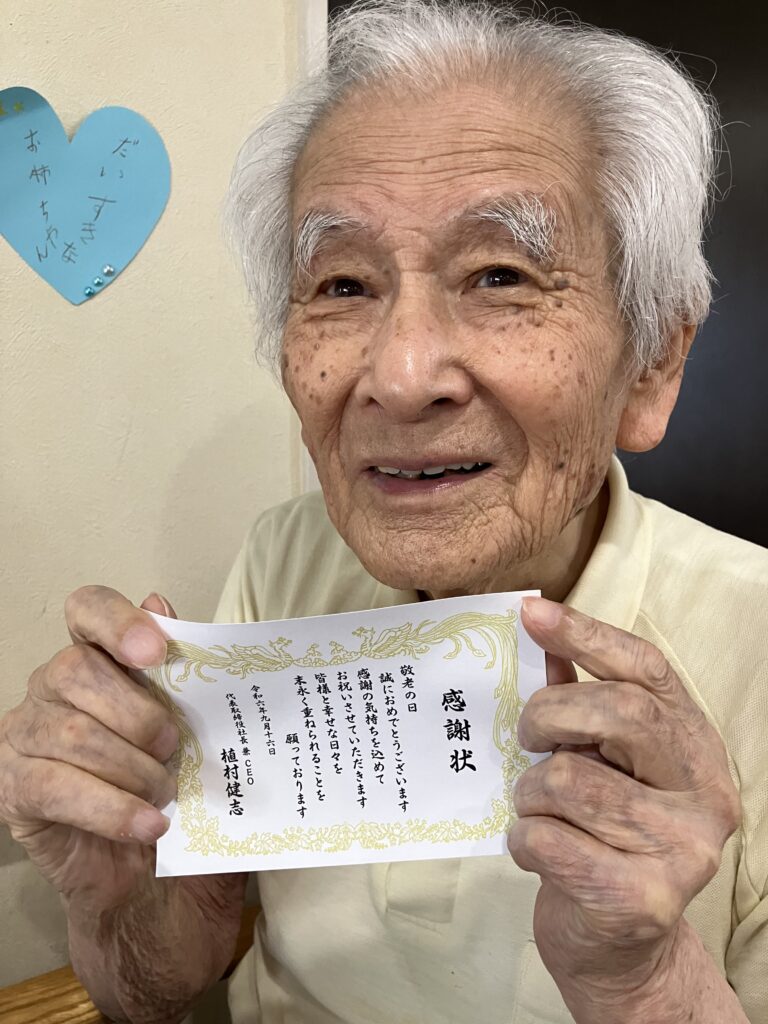 だいすきな
お姉ちゃん
感謝状
敬老の日
誠におめでとうございます
感謝の気持ちを込めて
お祝いさせていただきます
皆様と幸せな日々を
末永く重ねられることを
願っております
令和六年九月十六日
代表取締役社長 兼 CEO
植村健志